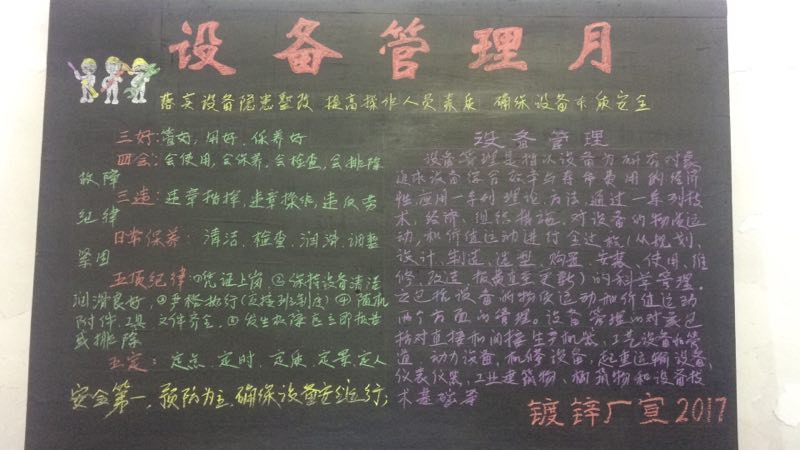 设备管理月
落实设备隐患整改 提高操作人员素质 确保设备本质安全
三好:管好,用好,保养好
四会:会使用,会保养,会检查,会排除
故障
三违:违章指挥,违章操作,违反劳
纪律
日常保养:清洁,检查,润滑,调整
紧固
五项纪律:①凭证上岗 ②保持设备清洁
润滑良好,③严格执行(交接班制度) ④随机
附件.工具 文件齐全,⑤发生故障应立即报告
或排除
五定:定点,定时,定质,定量,定人
安全第一,预防为主,确保设备安全运行;
设备管理
设备管理是指以设备为研究对象
追求设备综合效率与寿命费用的经济
性应用一系列理论、方法,通过一系列技
术、经济、组织措施,对设备的物质运
动,和价值运动进行全过程(从规划、
设计、制造、选型、购置、安装、使用、维
修、改造、报废直至更新)的科学管理.
它包括设备的物质运动和价值运动
两个方面的管理。设备管理的对象包
括对直接和间接生产机器、工艺设备和管
道、动力设备,机修设备,起重运输设备,
仪表仪器,工业建筑物,构筑物和设备技
术基础等
镀锌厂宣2017